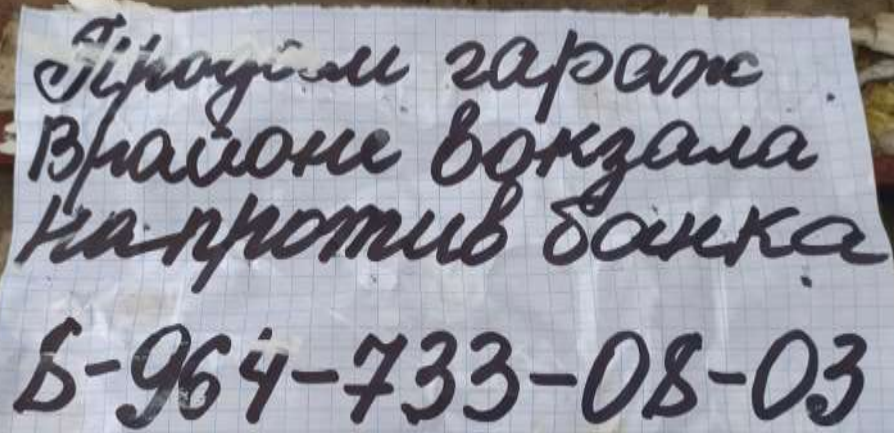 Продам гараж
В районе вокзала
напротив банка
8-964-733-08-03